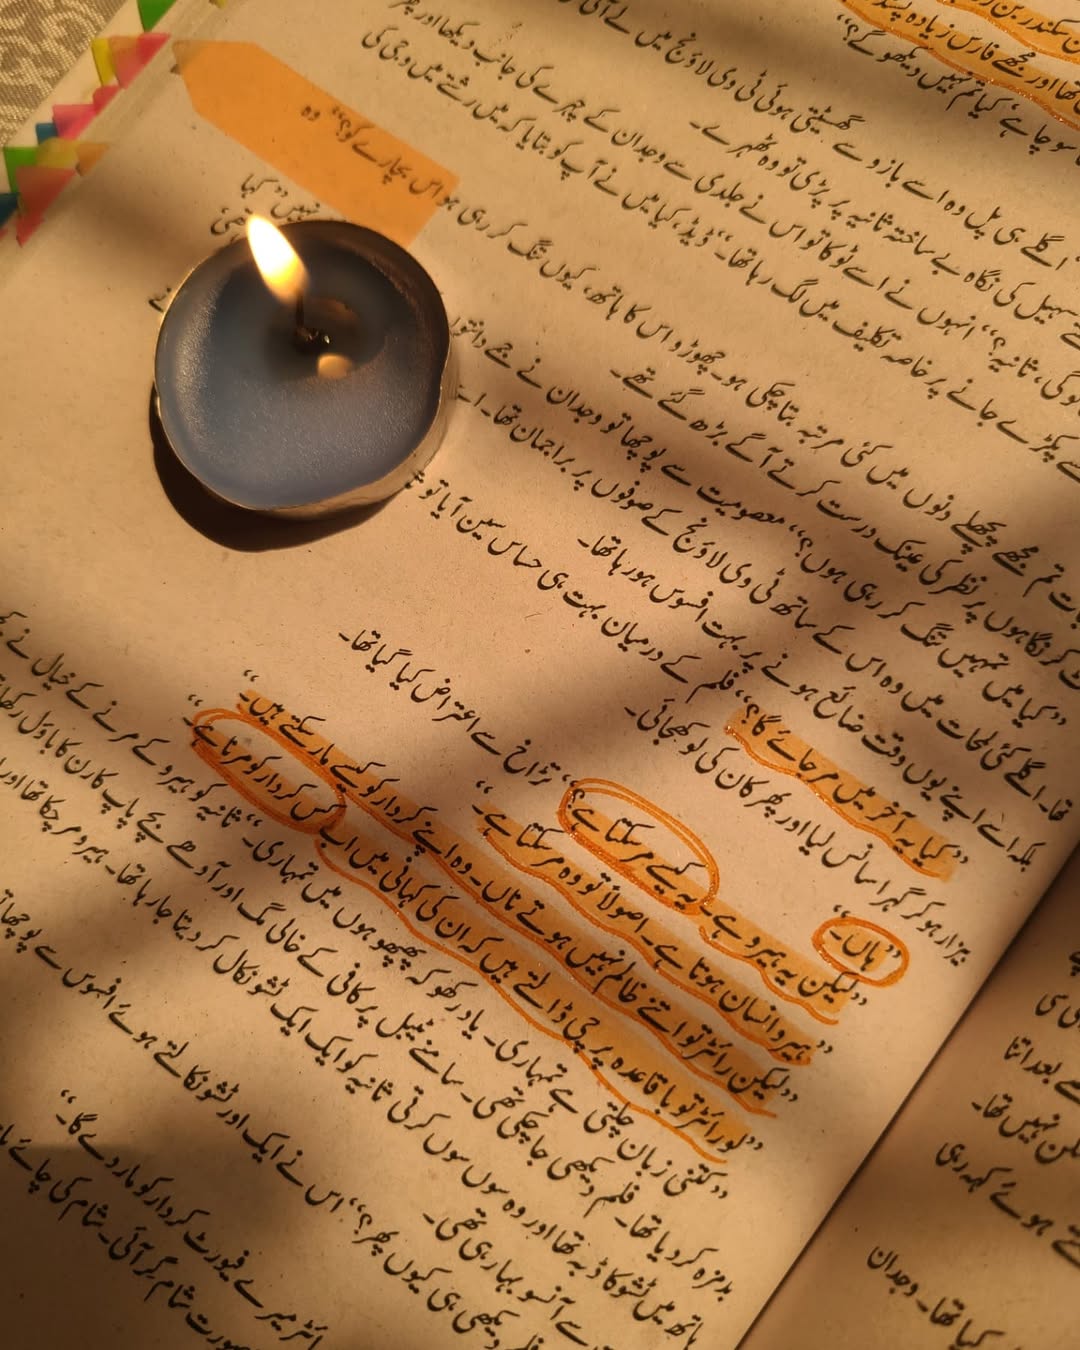 سکندر بن
تھا اور مجھے فارس زیادہ پسند
سوچا ہے، کیا تم نہیں دیکھو گے؟“
اگلے ہی پل وہ اسے بازو سے گھسیٹتی ہوئی ٹی وی لاؤنج میں لے آئی
سہیل کی نگاہ بے ساختہ ثانیہ پر پڑی تو وہ ٹھہرے۔
گی، ثانیہ؟“ انہوں نے اسے ٹوکا تو اس نے جلدی سے وجدان کے چہرے کی جانب دیکھا اور پھر
پکڑے جانے پر خاصہ تکلیف میں لگ رہا تھا۔ ”ڈیڈ، کیا میں نے آپ کو بتایا کہ میں رشتے میں وری کی
تم مجھے پچھلے دنوں میں کئی مرتبہ بتا چکی ہو۔ چھوڑو اس کا ہاتھ، کیوں تنگ کر رہی ہو اس بچارے کو؟“ وہ
کر نگاہوں پر نظر کی عینک درست کرتے آگے بڑھ گئے تھے۔
”کیا میں تمہیں تنگ کر رہی ہوں؟“ معصومیت سے پوچھا تو وجدان نے جمے دانتوں نہیں ”کہا
تھا۔ اگلے کئی لمحات میں وہ اس کے ساتھ ٹی وی لاؤنج کے صوفوں پر براجمان تھا۔
بلکہ اسے اپنے یوں وقت ضائع ہونے پر بہت افسوس ہو رہا تھا۔
”کیا یہ آخر میں مر جائے گا؟“ فلم کے درمیان بہت ہی حساس سین آیا تو
بیزار ہو کر گہرا سانس لیا اور پھر کان کی لو کھجائی۔
”ہاں۔“
”لیکن یہ ہیرو ہے۔ یہ کیسے مر سکتا ہے؟“ تڑاخ سے اعتراض کیا گیا تھا۔
”ہیرو انسان ہوتا ہے۔ اصولاً تو وہ مر سکتا ہے۔“
”لیکن رائٹر تو اتنے ظالم نہیں ہوتے ناں۔ وہ اپنے کردار کو کیسے مار سکتے ہیں۔“
”لو رائٹر تو باقاعدہ پرچی ڈالتے ہیں کہ ان کی کہانی میں اب کس کردار کو مرنا ہے۔“
”کتنی زبان چلتی ہے تمہاری۔ یاد رکھو کہ پھپھو ہوں میں تمہاری۔“ ثانیہ کو ہیرو کے مرنے کے خیال نے
بدمزہ کر دیا تھا۔ فلم دیکھی جا چکی تھی۔ سامنے ٹیبل پر کافی کے خالی مگ اور آدھے بچے پاپ کارن کا باؤل رکھا
ہاتھ میں ٹشو کا ڈبہ تھا اور وہ سوں سوں کرتی ثانیہ کو ایک ایک ٹشو نکال کر دیتا جا رہا تھا۔ ہیرو مر چکا تھا اور
سے آنسو بہا رہی تھی۔
فلم دیکھی ہی کیوں پھر؟“ اس نے ایک اور ٹشو نکالتے ہوئے افسوس سے پوچھا
رائٹر میرے فیورٹ کردار کو مار دے گا۔“
صورت شام گر آئی۔ شام کی چائے
سے بعد اتنا
نہیں تھا۔
ہوئے کہہ رہی
کیا تھا۔ وجدان